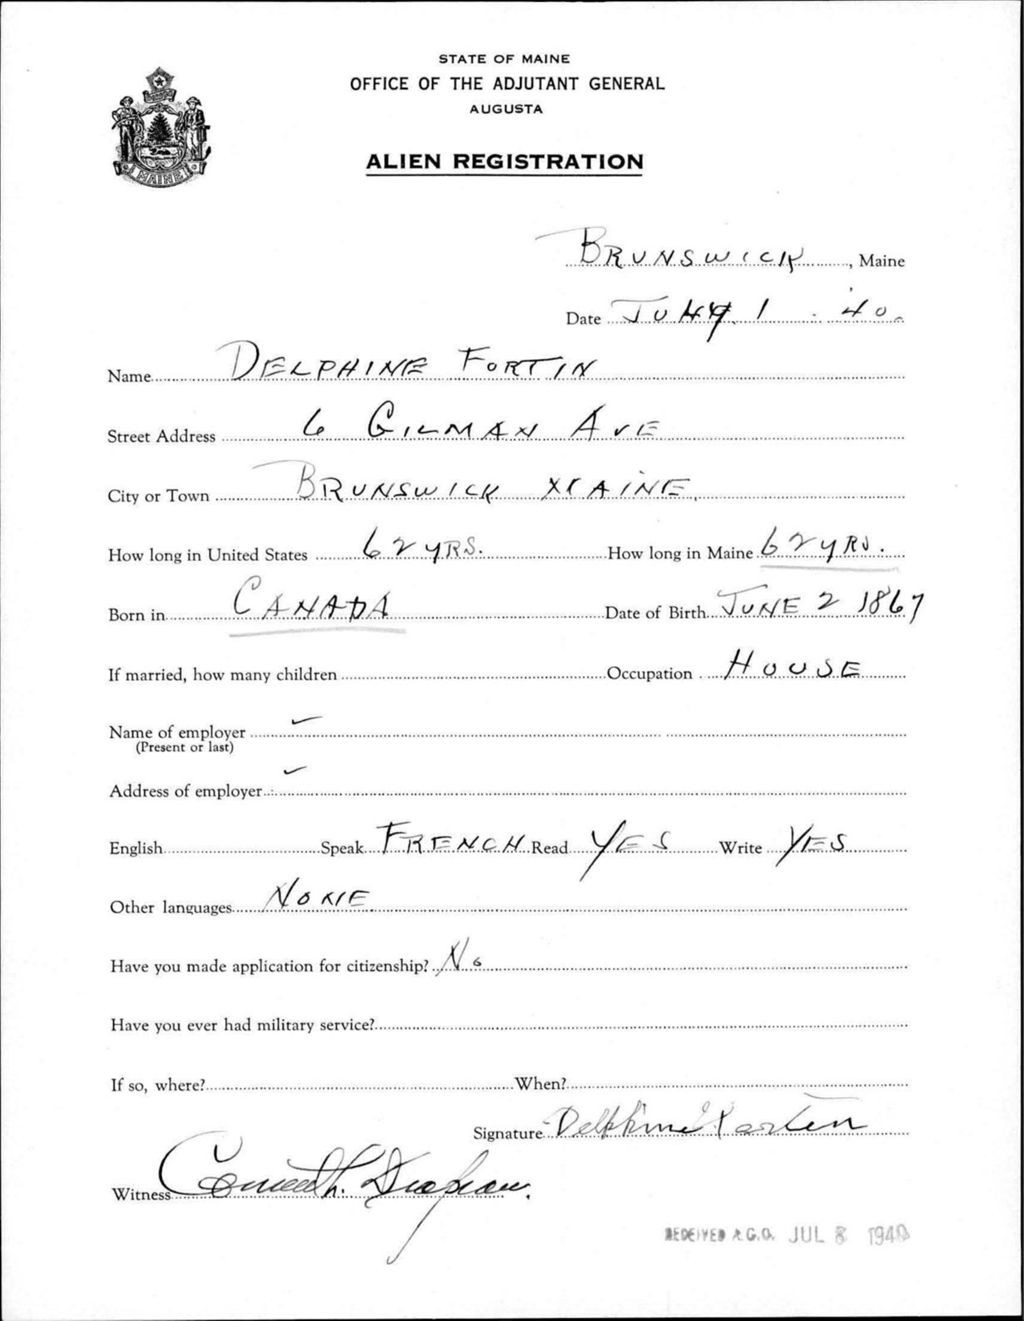 STATE OF MAINE
OFFICE OF THE ADJUTANT GENERAL
AUGUSTA
ALIEN REGISTRATION
MAINE
BRUNSWICK, Maine
Date 1 40.
Name DELPHINE FORTIN
Street Address 6 GILMAN AVE
City or Town BRUNSWICK MAINE.
How long in United States 62 YRS. How long in Maine 62 YRS.
Born in CANADA Date of Birth JUNE 2 1867
If married, how many children Occupation HOUSE
Name of employer
(Present or last)
Address of employer
English Speak FRENCH Read YES Write YES
Other languages NONE
Have you made application for citizenship? No
Have you ever had military service?
If so, where? When?
Signature Delphine
Witness
RECEIVED A.G.O. JUL 8 1940